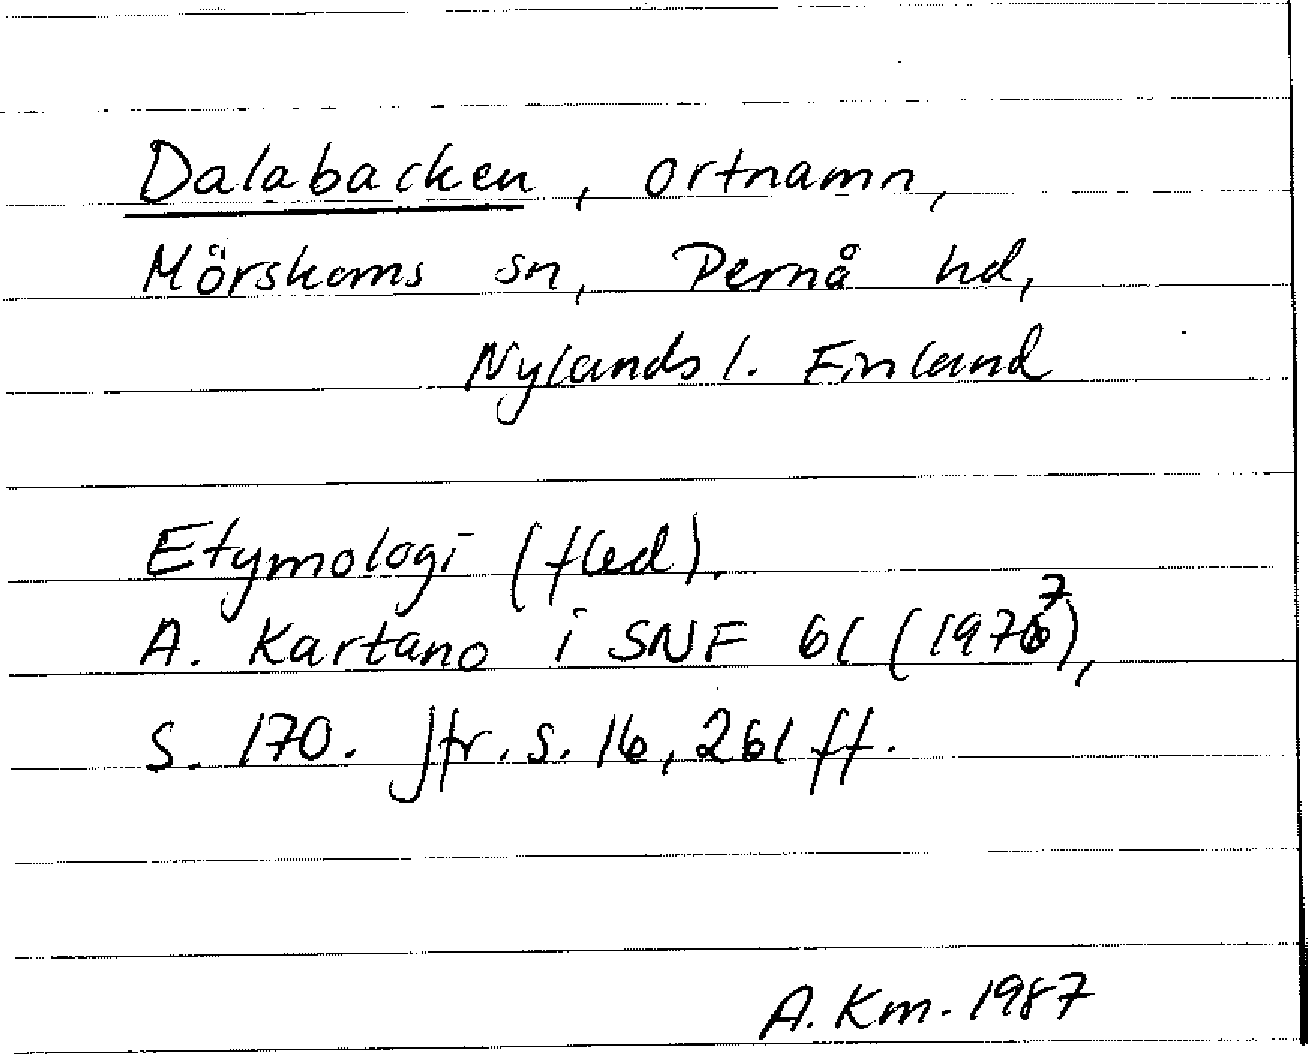 Dalabacken, ortnamn,
Mörskoms sn, Pernå hd,
Nylands l. Finland
Etymologi (fled).
A. Kartano i SNF 61 (1977),
S. 170. Jfr. s. 16, 261 ff.
A. Km. 1987